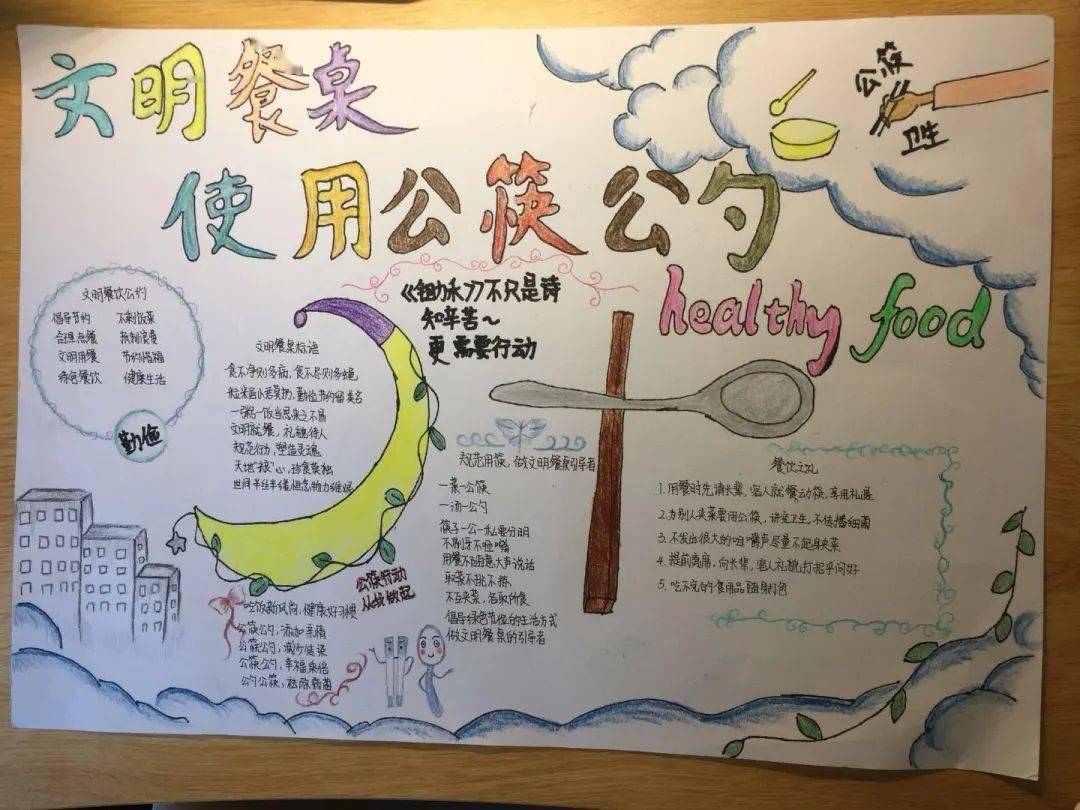 文明餐桌
使用公筷公勺
公筷
卫生
healthy food
文明餐饮公约
倡导节约 不剩饭菜
合理点餐 抵制浪费
文明用餐 节约惜福
绿色餐饮 健康生活
勤俭
《锄禾》不只是诗
知辛苦～
更需要行动
文明餐桌标语
食不净则多病,食不尽则多蝇
粒米虽小君莫扔,勤俭节约留美名
一粥一饭当思来之不易
文明就餐,礼貌待人
规范行为,塑造灵魂
天地"粮"心,珍食莫独
公筷行动
从我做起
吃饭新风尚,健康好习惯
公筷公勺,添加亲情
公筷公勺,减少传染
公筷公勺,幸福来临
公勺公筷,祛除病菌
规范用筷,做文明餐桌引导者
一菜一公筷
一汤一公勺
筷子一公一私要分明
不剔牙不咂嘴
用餐不随意大声说话
取菜不挑不拣
不互夹菜,各取所食
倡导绿色节俭的生活方式
做文明餐桌的引导者
餐饮之礼
1. 用餐时先请长辈,客人就餐动筷,享用礼遇
2. 为别人夹菜要用公筷,讲究卫生,不传播细菌
3. 不发出很大的咀嚼声尽量不起身夹菜
4. 提前离席,向长辈,客人礼貌打招乎问好
5. 吃不完的食用品随身打包